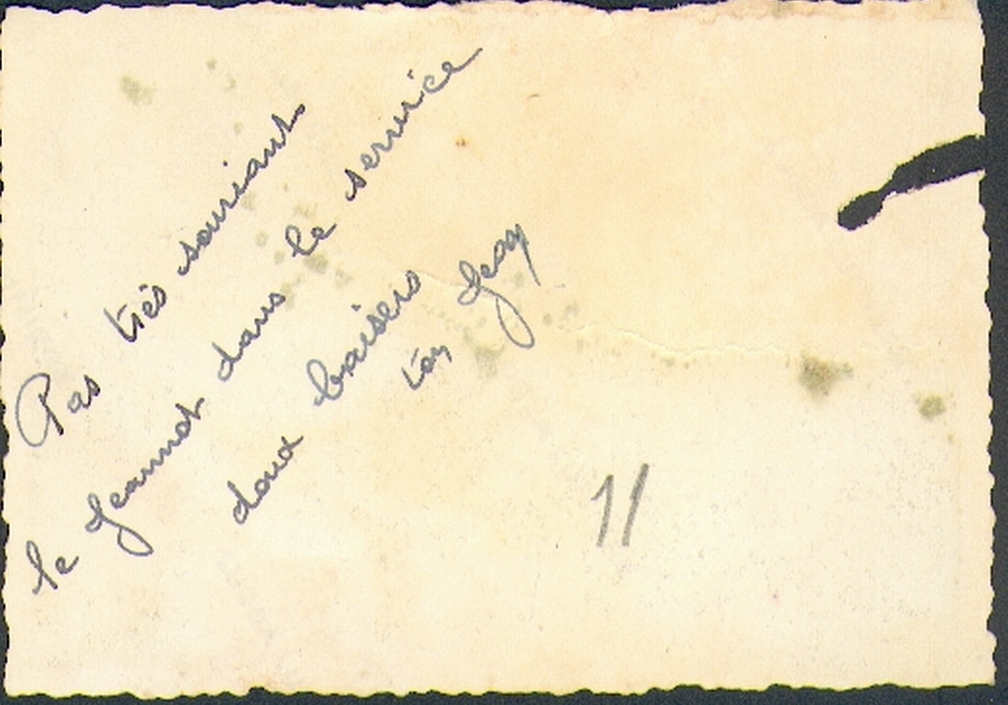 Pas très souriant
le Jeannot dans le service
doux baisers
ton Jean
11